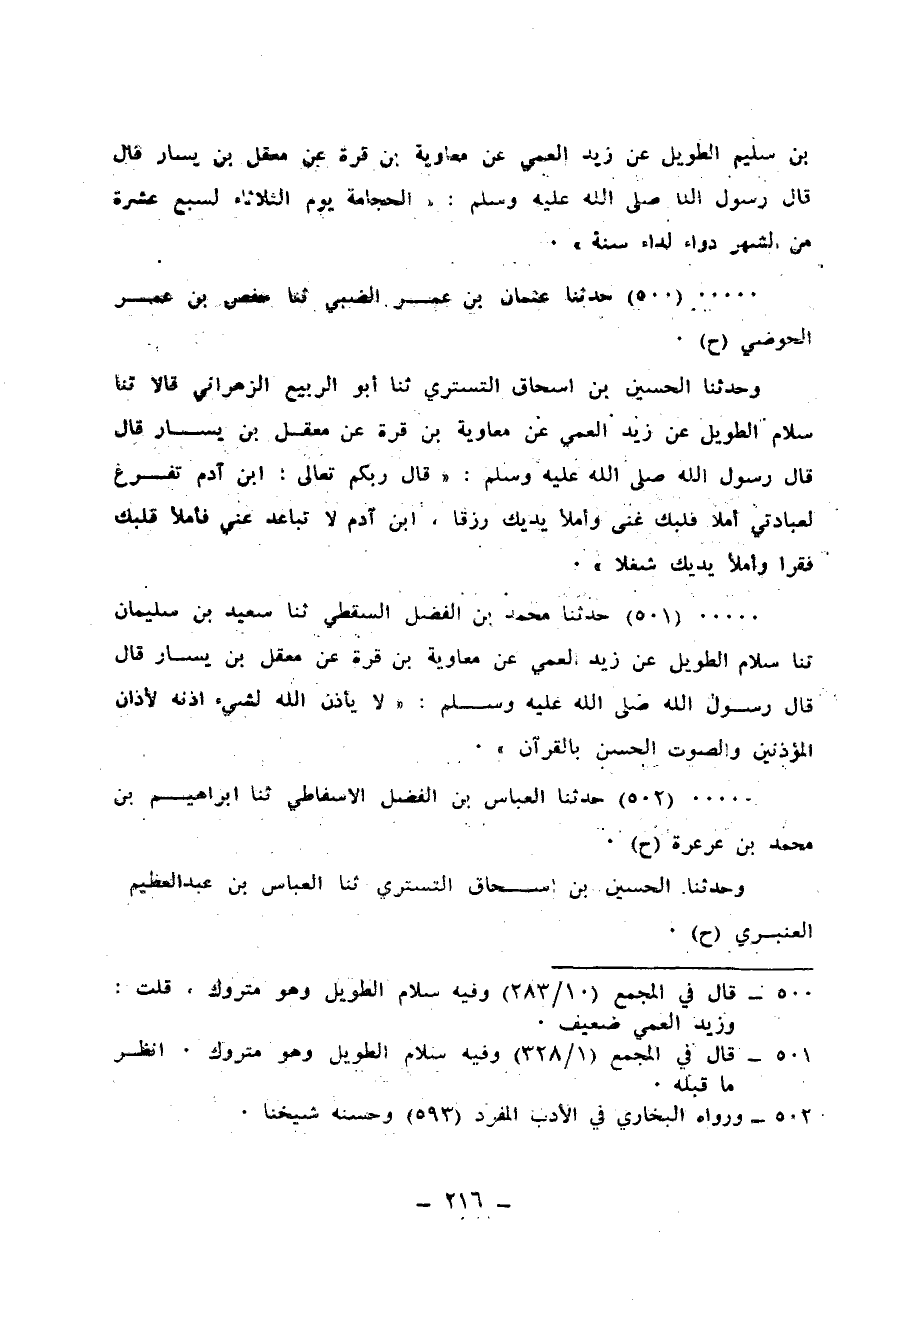 بن سليم الطويل عن زيد العمي عن معاوية بن قرة عن معقل بن يسار قال
قال رسول الله صلى الله عليه وسلم : « الحجامة يوم الثلاثاء لسبع عشرة
من الشهر دواء لداء سنة » ٠
٠٠٠٠٠ (٥٠٠) حدثنا عثمان بن عمـر الضبي ثنا حفص بن عمـر
الحوضي (ح) ٠
وحدثنا الحسين بن اسحاق التستري ثنا أبو الربيع الزهراني قالا ثنا
سلام الطويل عن زيد العمي عن معاوية بن قرة عن معقـل بن يسـار قال
قال رسول الله صلى الله عليه وسلم : « قال ربكم تعالى : ابن آدم تفـرغ
لعبادتي أملا قلبك غنى وأملأ يديك رزقا ، ابن آدم لا تباعد عني فأملأ قلبك
فقرا وأملأ يديك شغلا » ٠
٠٠٠٠٠ (٥٠١) حدثنا محمد بن الفضل السقطي ثنا سعيد بن سليمان
ثنا سلام الطويل عن زيد العمي عن معاوية بن قرة عن معقل بن يسـار قال
قال رسـول الله صلى الله عليه وسـلم : « لا يأذن الله لشيء اذنه لأذان
المؤذنين والصوت الحسن بالقرآن » ٠
٠٠٠٠٠ (٥٠٢) حدثنا العباس بن الفضل الاسفاطي ثنا ابراهيـم بن
محمد بن عرعرة (ح) ٠
وحدثنا الحسين بن اسـحاق التستري ثنا العباس بن عبدالعظيم
العنبـري (ح) ٠
٥٠٠ ـ قال في المجمع (٢٨٣/١٠) وفيه سلام الطويل وهو متروك ، قلت :
وزيد العمي ضعيف ٠
٥٠١ ـ قال في المجمع (٣٢٨/١) وفيه سلام الطويل وهو متروك ٠ انظـر
ما قبله ٠
٥٠٢ ـ ورواه البخاري في الأدب المفرد (٥٩٣) وحسنه شيخنا ٠
ـ ٢١٦ ـ